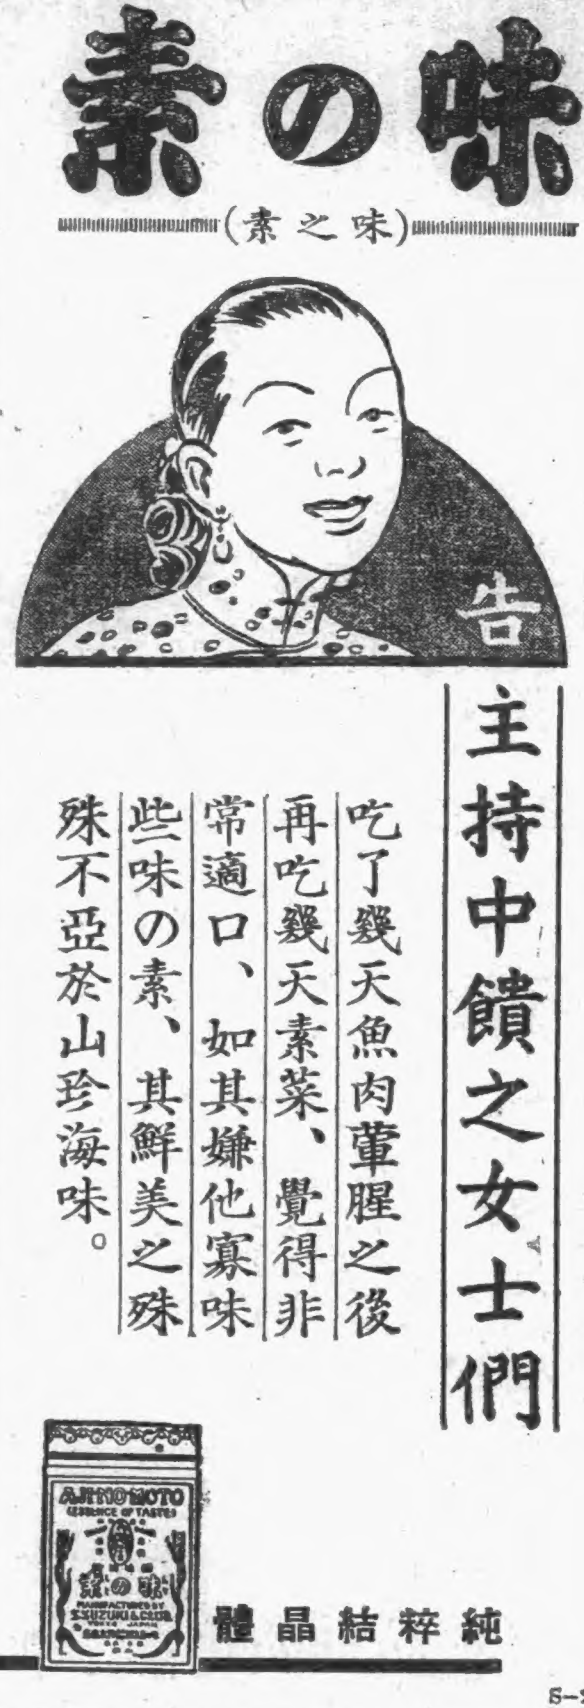 味の素
(味之素)
告
主持中饋之女士們
吃了幾天魚肉葷腥之後
再吃幾天素菜、覺得非
常適口、如其嫌他寡味
些味の素、其鮮美之殊
殊不亞於山珍海味。
AJI-NO-MOTO
(ESSENCE OF TASTE)
味の素
MANUFACTURED BY
S.SUZUKI & CO. LTD.
TOKYO JAPAN
純粹結晶體
S-